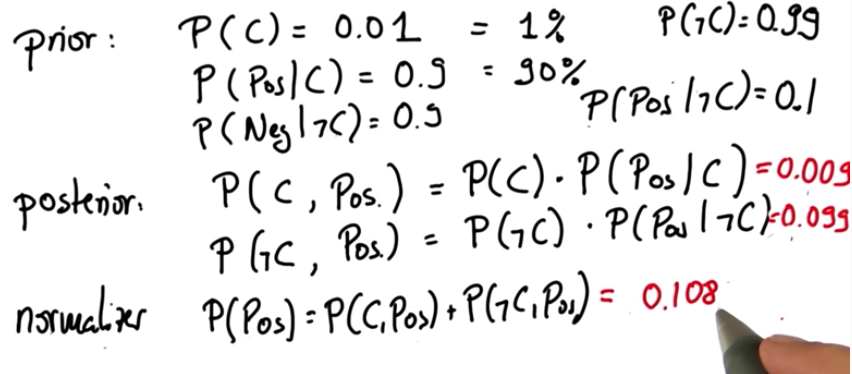 prior: P(C) = 0.01 = 1% P(¬C) = 0.99
P(Pos|C) = 0.9 = 90% P(Pos|¬C) = 0.1
P(Neg|¬C) = 0.9
posterior: P(C, Pos.) = P(C) · P(Pos|C) = 0.009
P(¬C, Pos.) = P(¬C) · P(Pos|¬C) = 0.099
normalizer P(Pos) = P(C,Pos) + P(¬C,Pos) = 0.108